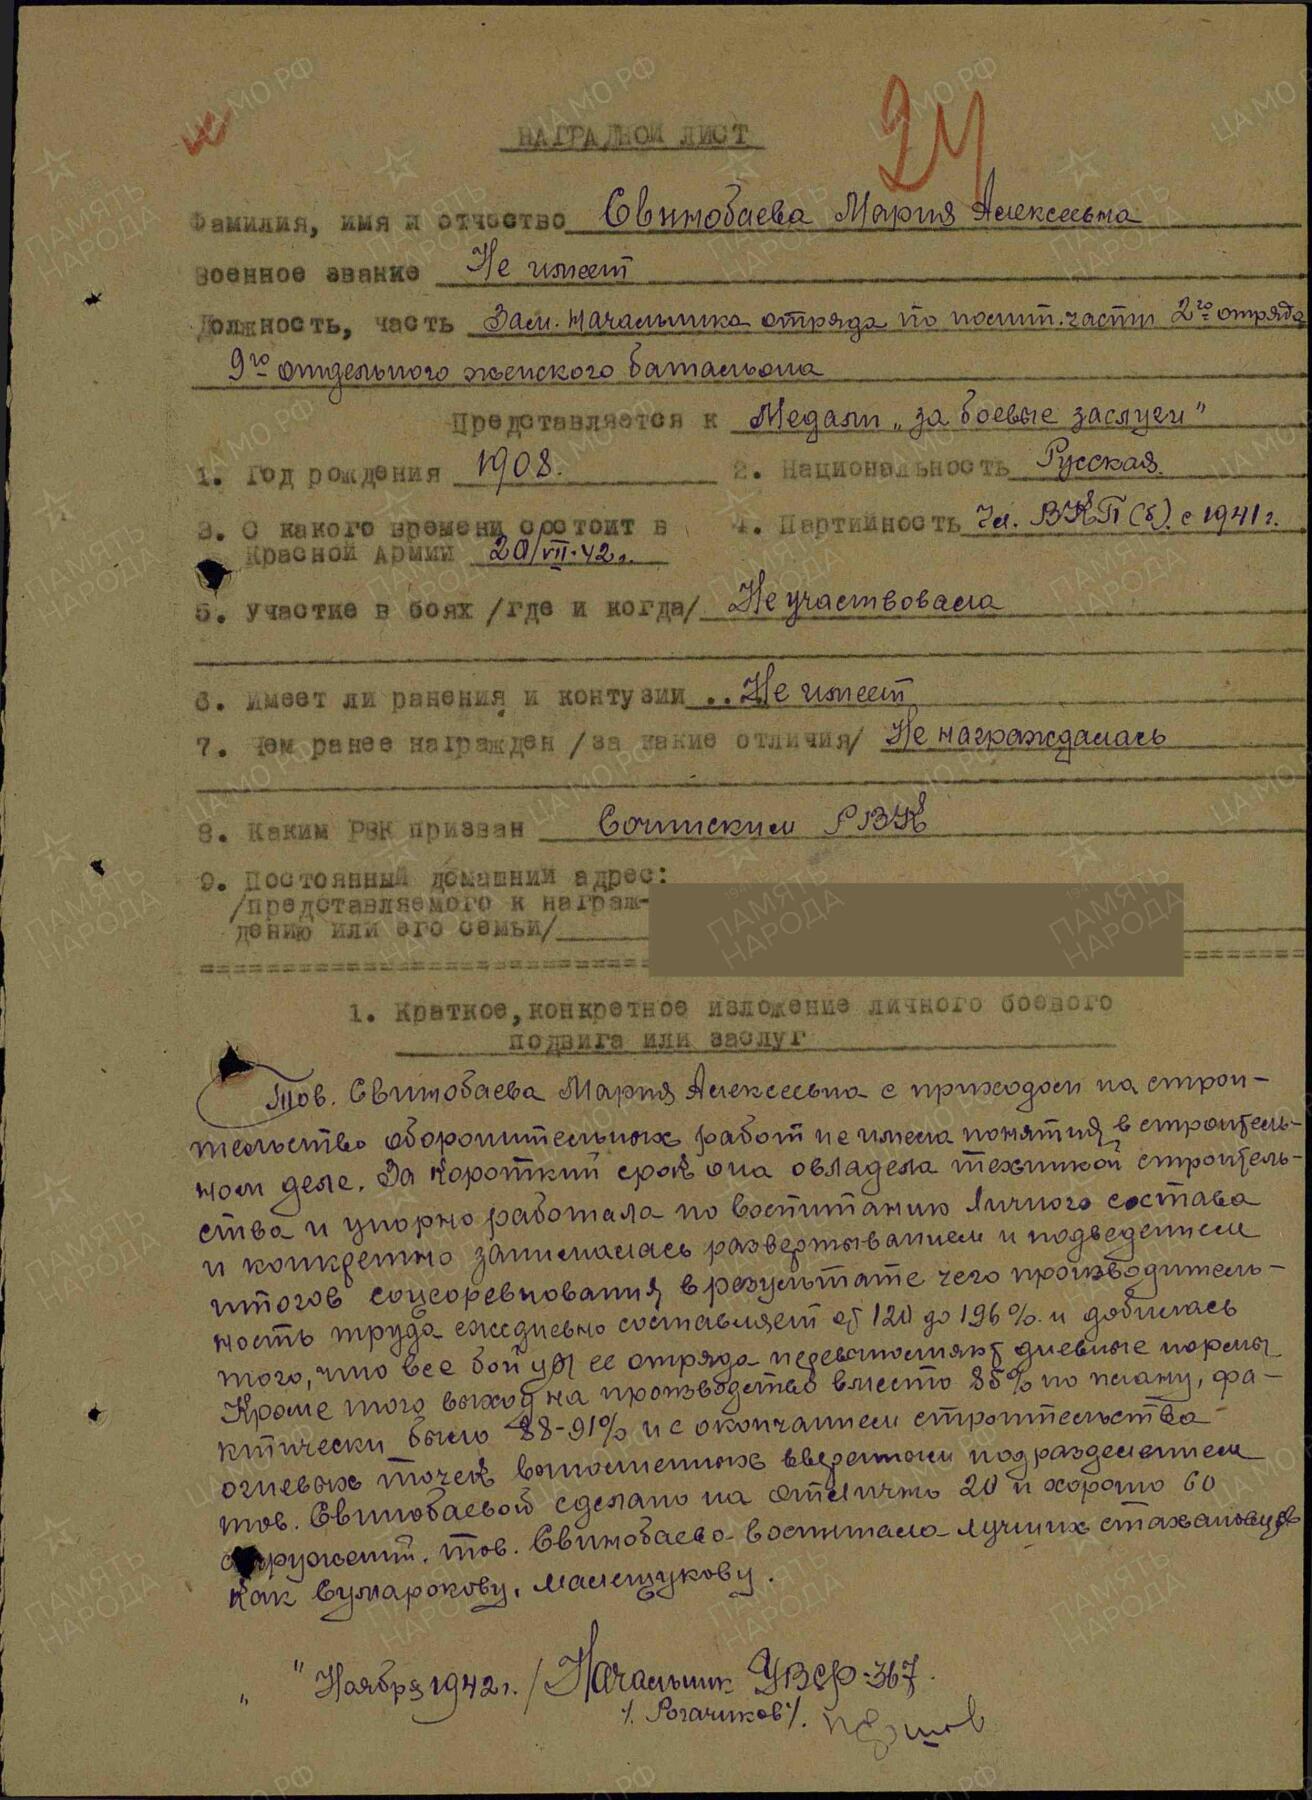 24
НАГРАДНОЙ ЛИСТ
Фамилия, имя и отчество Свинобаева Мария Алексеевна
Военное звание Не имеет
Должность, часть Зам. начальника отряда по полит. части 2го отряда
9го отдельного женского батальона
Представляется к Медали „за боевые заслуги"
1. Год рождения 1908. 2. Национальность Русская.
3. С какого времени состоит в 4. Партийность Чл. ВКП(б). с 1941 г.
Красной Армии 20/VII-42г.
5. Участие в боях /где и когда/ Не участвовала
6. Имеет ли ранения и контузии .. Не имеет
7. Чем ранее награжден /за какие отличия/ Не награждалась
8. Каким РВК призван Сочинским РВК
9. Постоянный домашний адрес:
/представляемого к награж-
дению или его семьи/
1. Краткое, конкретное изложение личного боевого
подвига или заслуг
Тов. Свинобаева Мария Алексеевна с приходом на строи-
тельство оборонительных работ не имела понятия в строитель-
ном деле. За короткий срок она овладела техникой строитель-
ства и упорно работала по воспитанию личного состава
и конкретно занималась развертыванием и подведением
итогов соцсоревнования, в результате чего производитель-
ность труда ежедневно составляет от 120 до 196%. и добилась
того, что все бойцы ее отряда перевыполняют дневные нормы
Кроме того выход на производство вместо 85% по плану, фа-
ктически было 88-91% и с окончанием строительства
огневых точек выполненных вверенным подразделением
тов. Свинобаевой сделано на отлично 20 и хорошо 60
сооружений. тов. Свинобаева воспитала лучших стахановцев
как Сумарокову, Малещукову.
" " Ноября 1942 г. / Начальник УВСР-367.
/. Рогачиков /.